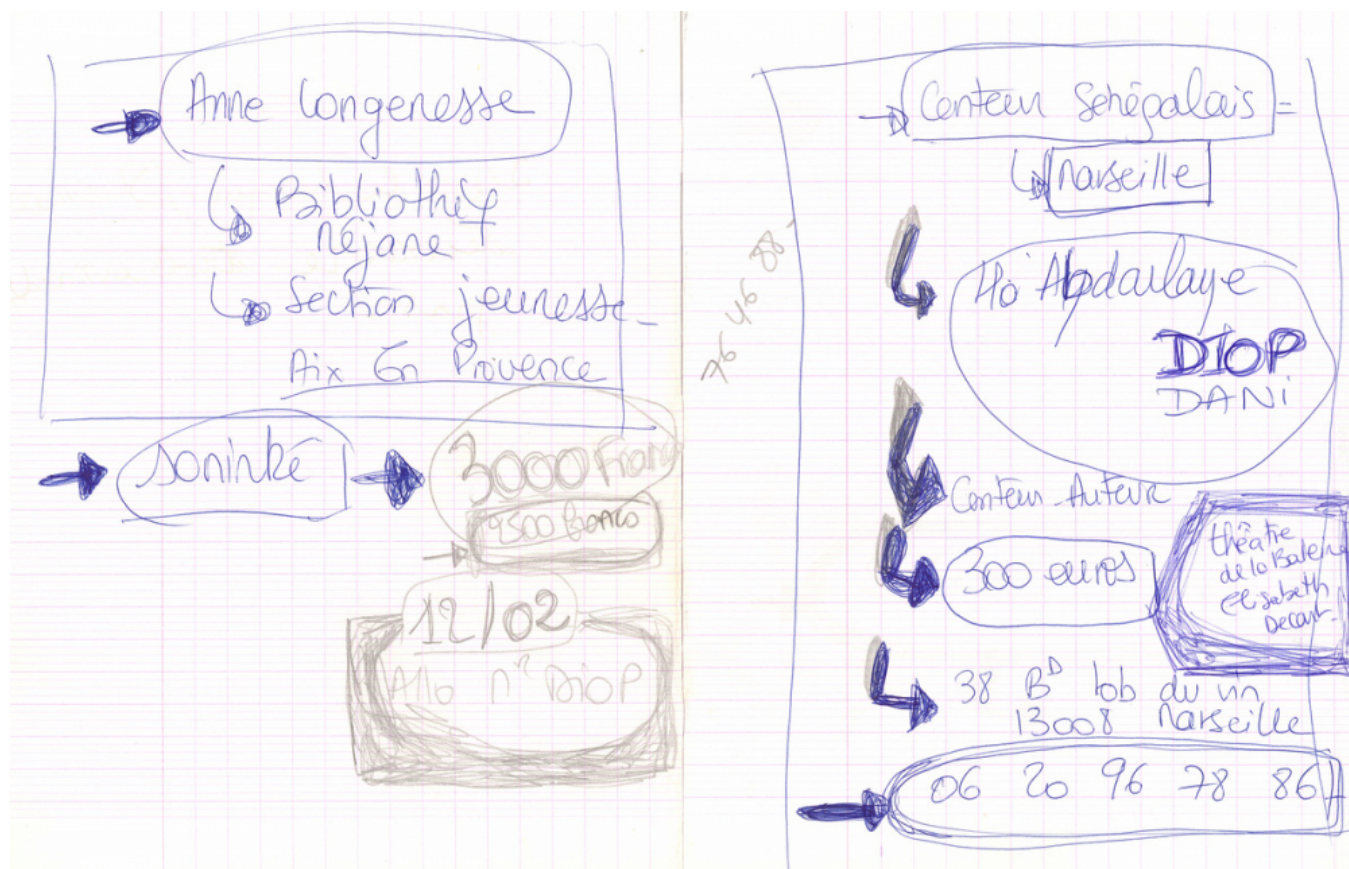 Anne Longenesse
Bibliothèq
Méjane
Section jeunesse
Aix En Provence
soninké
3000 Franc
2500 francs
12/02
Allo Mr DiOP
76 46 88 -
Conteur Sénégalais =
Marseille
Mo Abdoulaye
DIOP
DANi
Conteur-Auteur
300 euros
théâtre
de la Baleine
Elisabeth
38 BD du vin
13008 Marseille
06 20 96 78 86